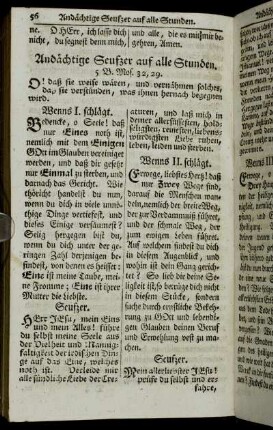 56 Andächtige Seufzer auf alle Stunden.
ne. O HErr, ich lasse dich
nicht, du segnest denn mich,
und alle, die es mit mir be-
gehren, Amen.
Andächtige Seufzer auf alle Stunden.
5 B. Mos. 32, 29.
O! daß sie weise wären, und vernähmen solches,
da, sie verstünden, was ihnen hernach begegnen
wird.
Wenns I. schlägt.
Bedencke, o Seele! daß
nur Eines noth ist,
nemlich mit dem Einigen
GOtt im Glauben vereiniget
werden, und daß dir gesetzt
nur Einmal zu sterben, und
darnach das Gericht. Wie
thöricht handelst du nun,
wenn du dich in viele unnö-
thige Dinge vertiefest, und
dieses Einige versäumest?
Selig hergegen bist du,
wenn du dich unter der ge-
ringen Zahl derjenigen be-
findest, von denen es heisset:
Eine ist meine Taube, mei-
ne Fromme; Eine ist ihrer
Mutter die Liebste.
Seufzer.
HErr JEsu, mein Eins
und mein Alles! führe
du selbst meine Seele aus
der Vielheit und Mannig-
faltigkeit der irdischen Din-
ge in das Eine, welches
noth ist. Verleide mir
alle sündliche Liebe der Cre-
aturen, und laß mich in
deiner, als des allerschönsten, hold-
seligsten, reinesten, liebens-
würdigsten Liebe ruhen,
leben, leiden und sterben.
Wenns II. schlägt.
Erwege, liebstes Hertz! daß
nur Zwey Wege sind,
darauf die Menschen wan-
deln, nemlich der breite Weg,
der zur Verdammniß führet,
und der schmale Weg, der
zum ewigen Leben führet.
Auf welchem findest du dich
in diesem Augenblick, und
wohin ist dein Gang gerich-
tet? So lieb dir deine Se-
ligkeit ist, so betrüge dich nicht
in diesem Stücke, sondern
suche durch ernstliche Bekeh-
rung zu GOtt und lebendi-
gen Glauben deinen Beruf
und Erwehlung vest zu ma-
chen.
Seufzer.
Mein allerliebster JEsu!
prüfe du selbst und er-
fahre,